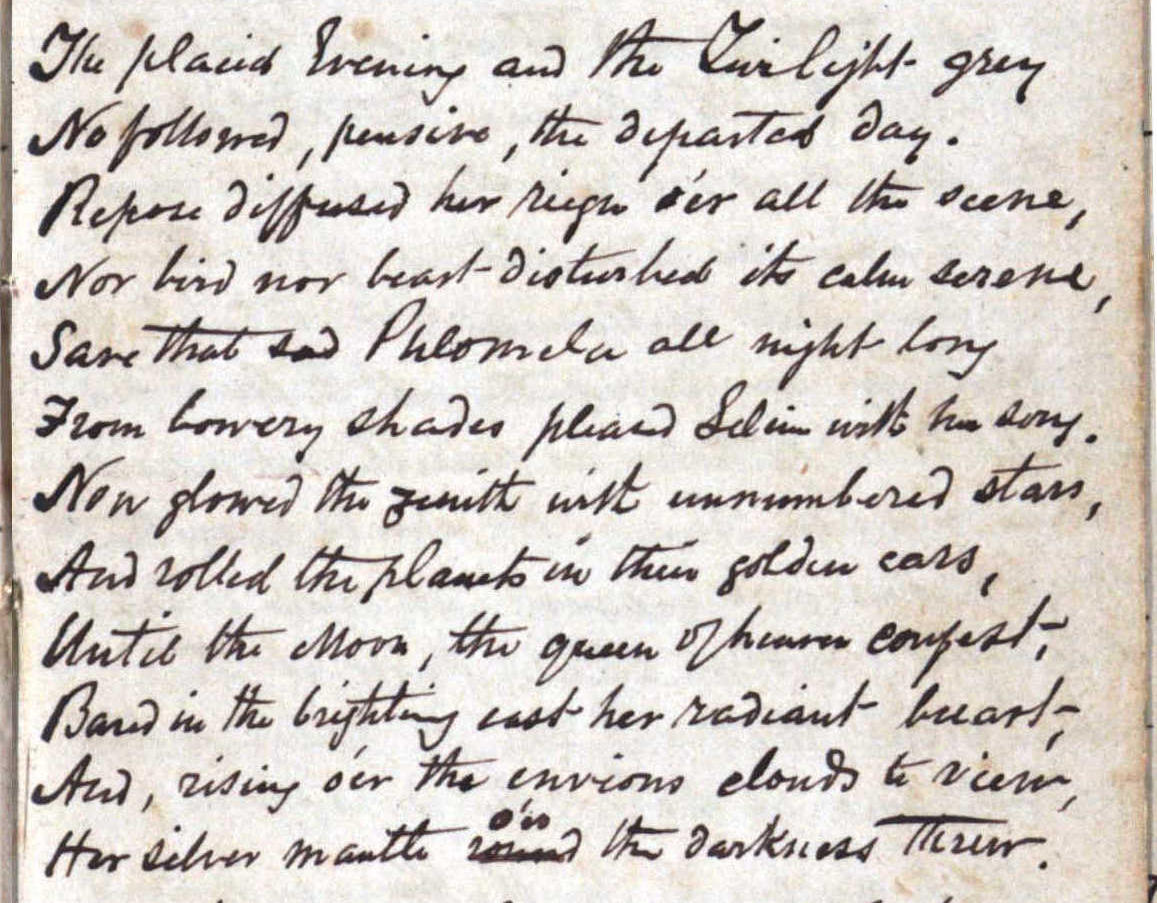 The placid Evening and the Twilight grey
No followed, pensive, the departed day.
Repose diffused her reign o'er all the scene,
Nor bird nor beast disturbed its calm serene,
Save that sad Philomela all night long
From bowery shades pleasd Selim with her song.
Now glowed the zenith with unnumbered stars,
And rolled the planets in their golden cars,
Until the Moon, the queen of heaven confest,
Bared in the brightning east her radiant breast,
And, rising o'er the envious clouds to view,
o'er
Her silver mantle round the darkness threw.